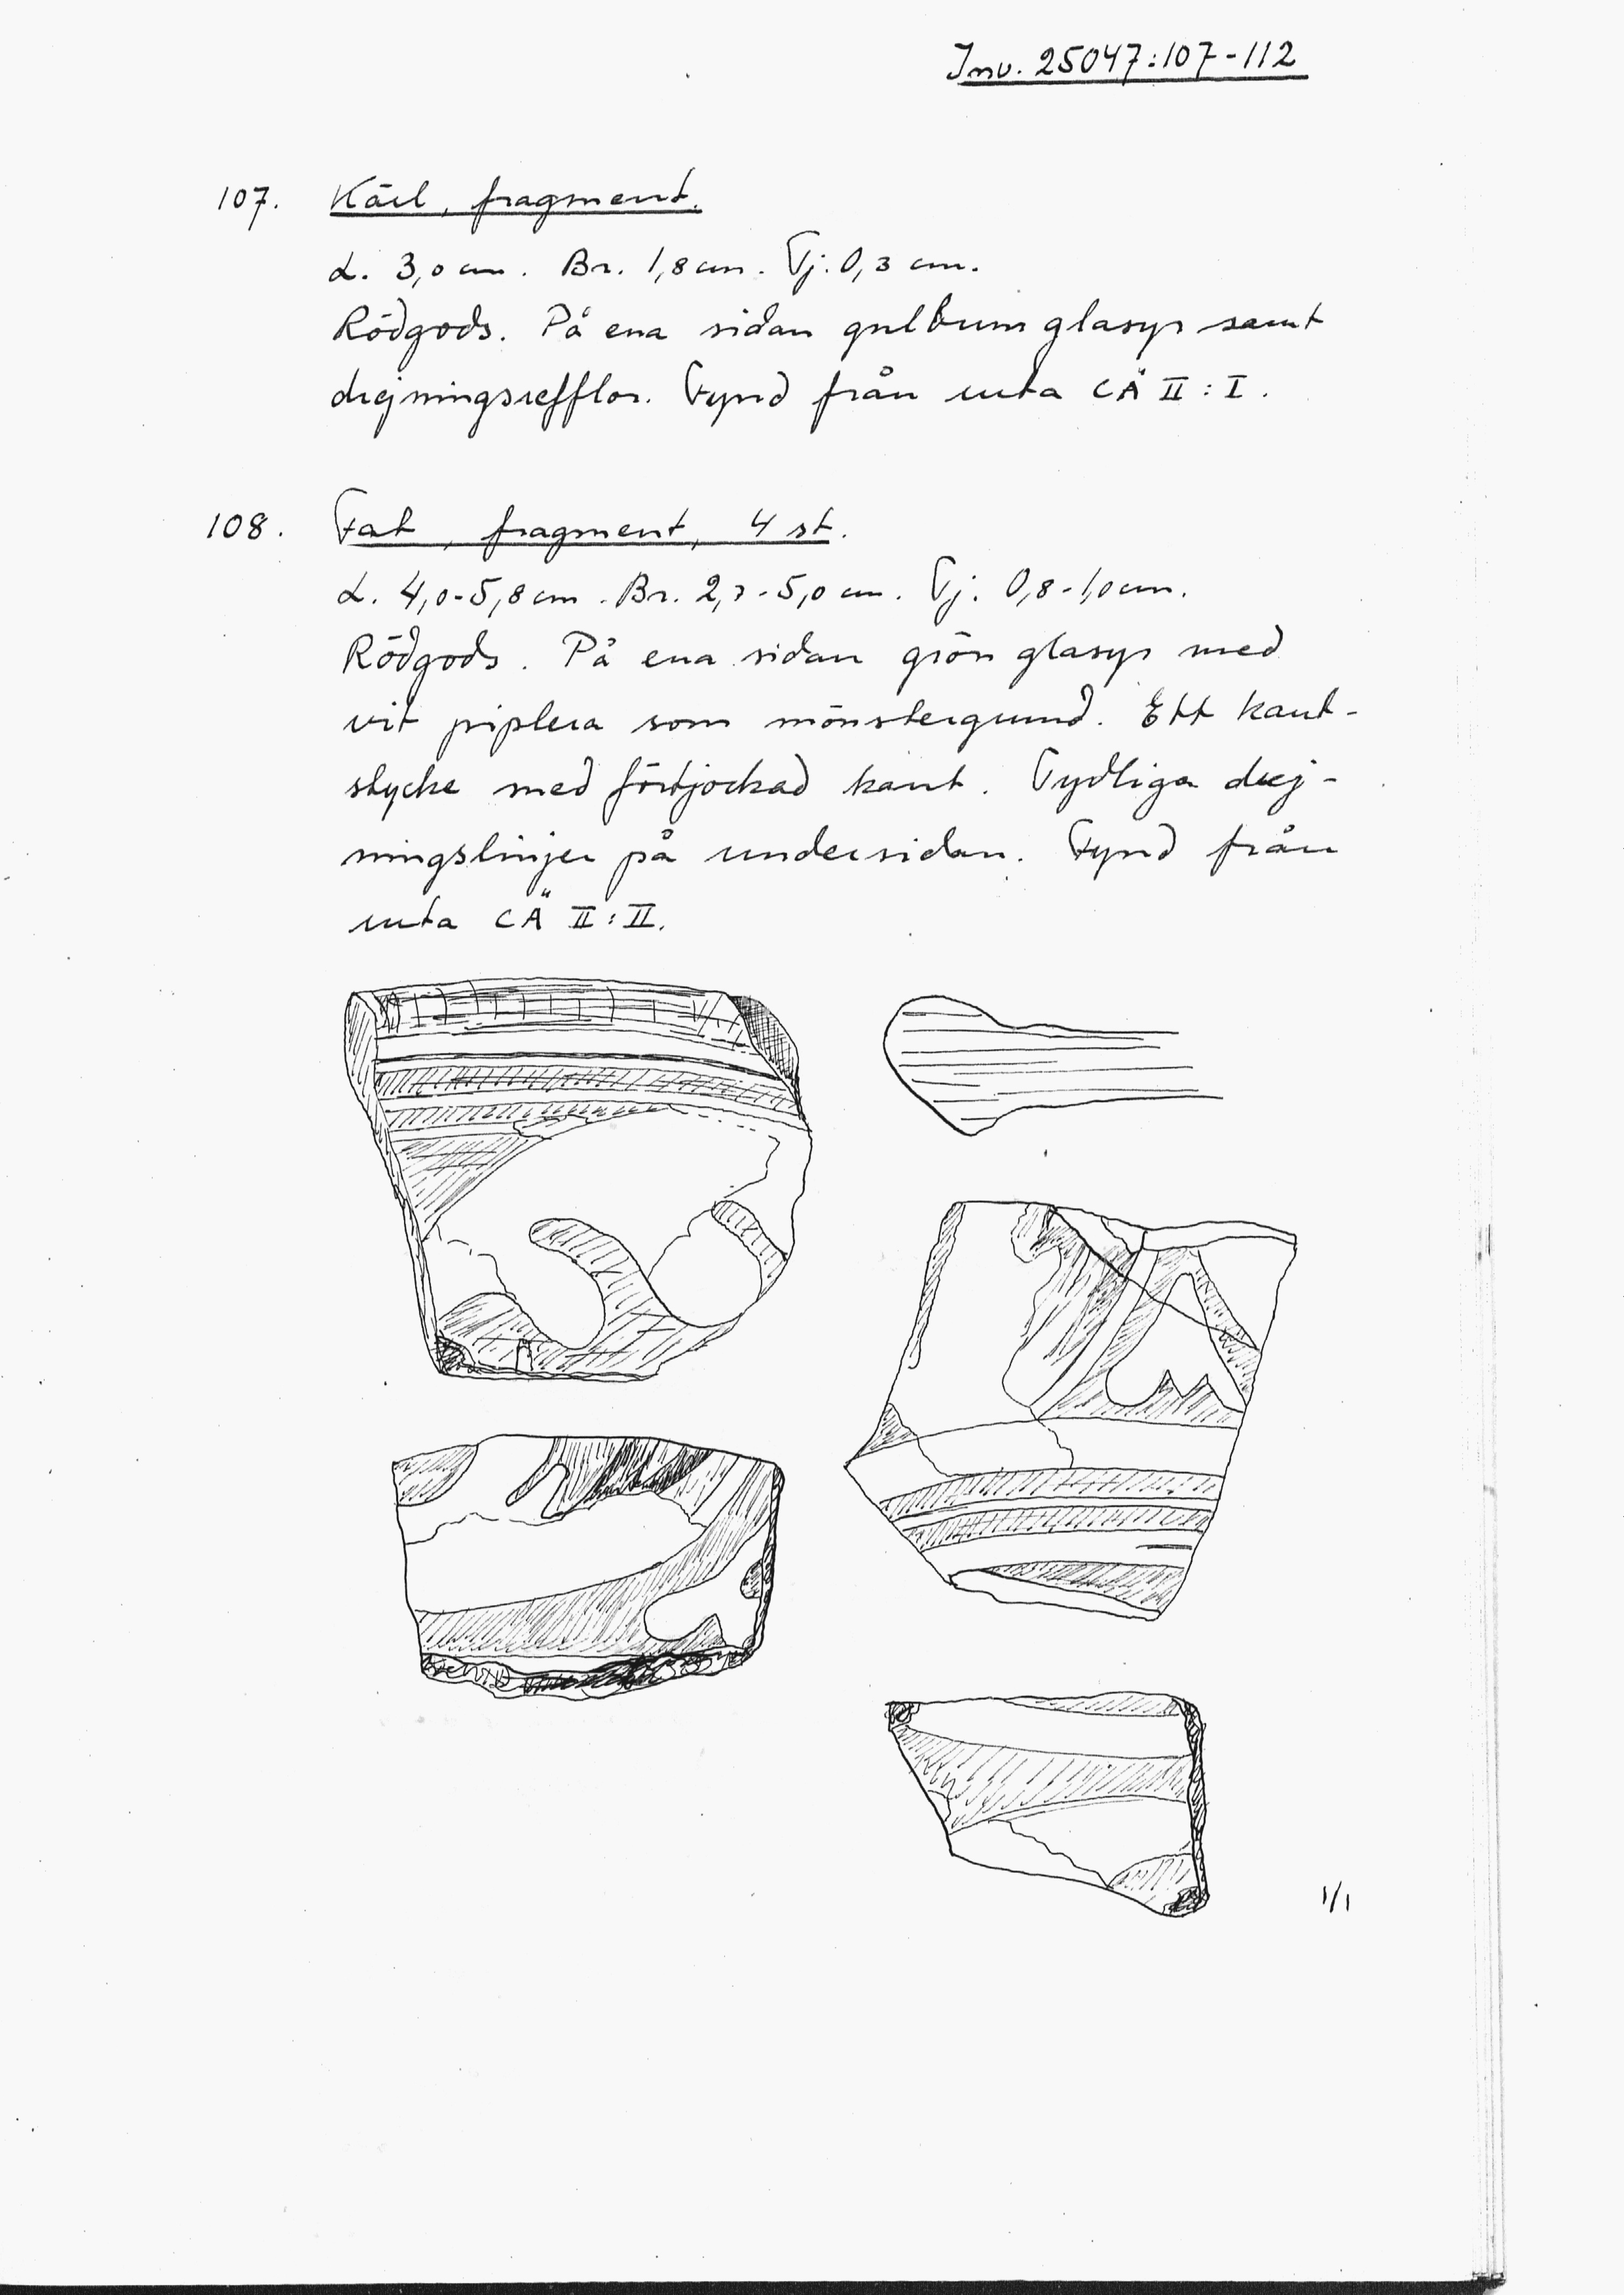 Inv. 25047:107-112
107. Kärl, fragment.
L. 3,0 cm. Br. 1,8 cm. Tj. 0,3 cm.
Rödgods. På ena sidan gulbrun glasyr samt
drejningsrefflor. Fynd från ruta CÄ II:I.
108. Fat, fragment, 4 st.
L. 4,0-5,8 cm. Br. 2,7-5,0 cm. Tj. 0,8-1,0 cm.
Rödgods. På ena sidan grön glasyr med
vit piplera som mönstergrund. Ett kant-
stycke med förtjockad kant. Tydliga drej-
ningslinjer på undersidan. Fynd från
ruta CÄ II:II.
1/1